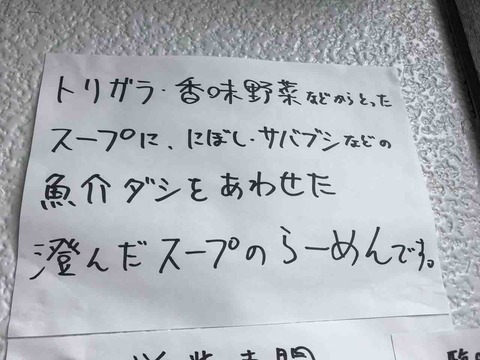 トリガラ・香味野菜などからとった
スープに、にぼし・サバブシなどの
魚介ダシをあわせた
澄んだスープのらーめんです。